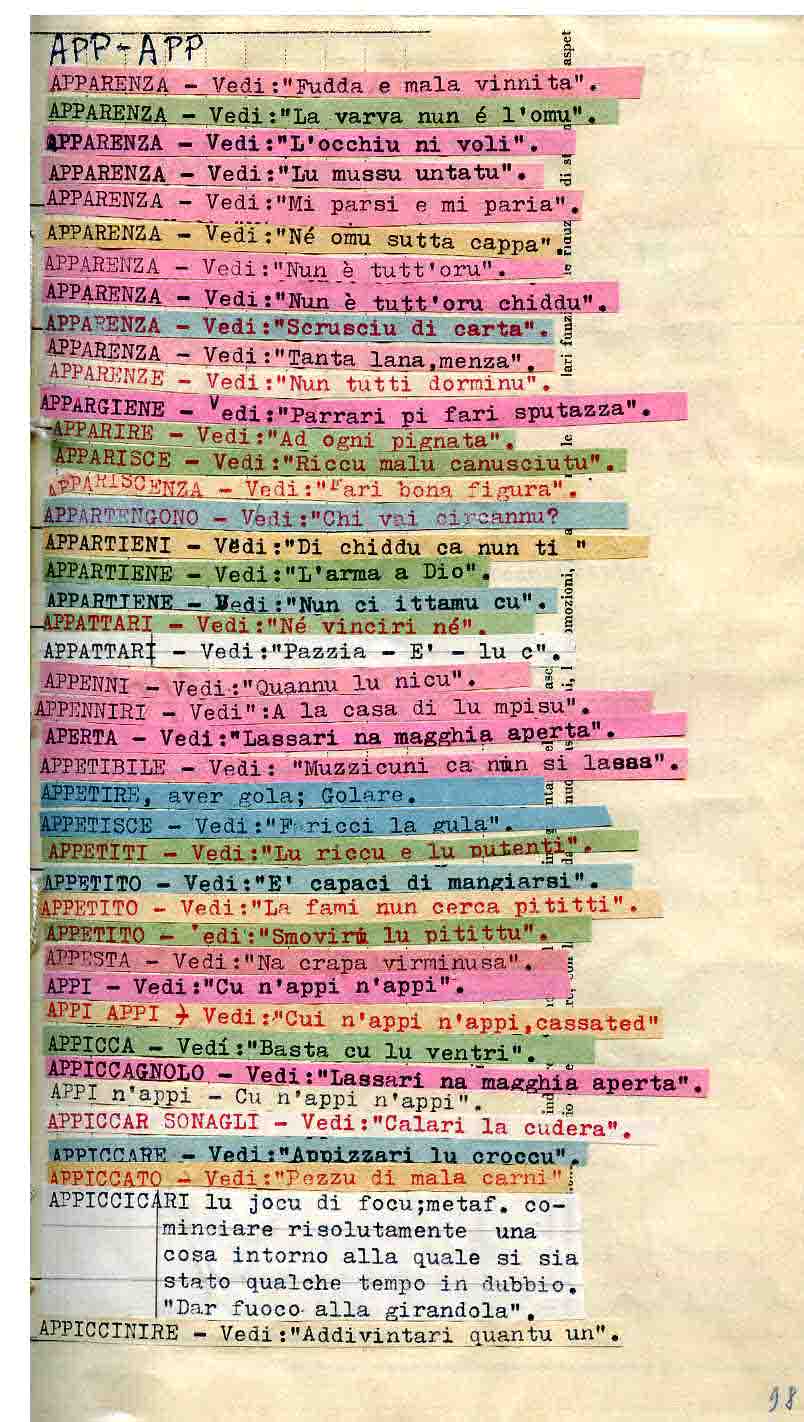 APP-APP
APPARENZA - Vedi:"Fudda e mala vinnita".
APPARENZA - Vedi:"La varva nun é l'omu".
APPARENZA - Vedi:"L'occhiu ni voli".
APPARENZA - Vedi:"Lu mussu untatu".
APPARENZA - Vedi:"Mi parsi e mi paria".
APPARENZA - Vedi:"Né omu sutta cappa".
APPARENZA - Vedi:"Nun è tutt'oru".
APPARENZA - Vedi:"Nun è tutt'oru chiddu".
APPARENZA - Vedi:"Scrusciu di carta".
APPARENZA - Vedi:"Tanta lana,menza".
APPARENZE - Vedi:"Nun tutti dorminu".
APPARGIENE - Vedi:"Parrari pi fari sputazza".
APPARIRE - Vedi:"Ad ogni pignata".
APPARISCE - Vedi:"Riccu malu canusciutu".
APPARISCENZA - Vedi:"Fari bona figura".
APPARTENGONO - Vedi:"Chi vai circannu?
APPARTIENI - Vedi:"Di chiddu ca nun ti "
APPARTIENE - Vedi:"L'arma a Dio".
APPARTIENE - Vedi:"Nun ci ittamu cu".
APPATTARI - Vedi:"Né vinciri né".
APPATTARI - Vedi:"Pazzia - E' - lu c".
APPENNI - Vedi:"Quannu lu nicu".
APPENNIRI - Vedi":A la casa di lu mpisu".
APERTA - Vedi:"Lassari na magghia aperta".
APPETIBILE - Vedi: "Muzzicuni ca nun si lassa".
APPETIRE, aver gola; Golare.
APPETISCE - Vedi:"F ricci la gula".
APPETITI - Vedi:"Lu riccu e lu putenti".
APPETITO - Vedi:"E' capaci di mangiarsi".
APPETITO - Vedi:"La fami nun cerca pititti".
APPETITO - Vedi:"Smoviri lu pitittu".
APPESTA - Vedi:"Na crapa virminusa".
APPI - Vedi:"Cu n'appi n'appi".
APPI APPI - Vedi:"Cui n'appi n'appi,cassated"
APPICCA - Vedi:"Basta cu lu ventri".
APPICCAGNOLO - Vedi:"Lassari na magghia aperta".
APPI n'appi - Cu n'appi n'appi".
APPICCAR SONAGLI - Vedi:"Calari la cudera".
APPICCARE - Vedi:"Appizzari lu croccu".
APPICCATO - Vedi:"Pezzu di mala carni"
APPICCICARI lu jocu di focu;metaf. co-
minciare risolutamente una
cosa intorno alla quale si sia
stato qualche tempo in dubbio.
"Dar fuoco alla girandola".
APPICCINIRE - Vedi:"Addivintari quantu un".
98